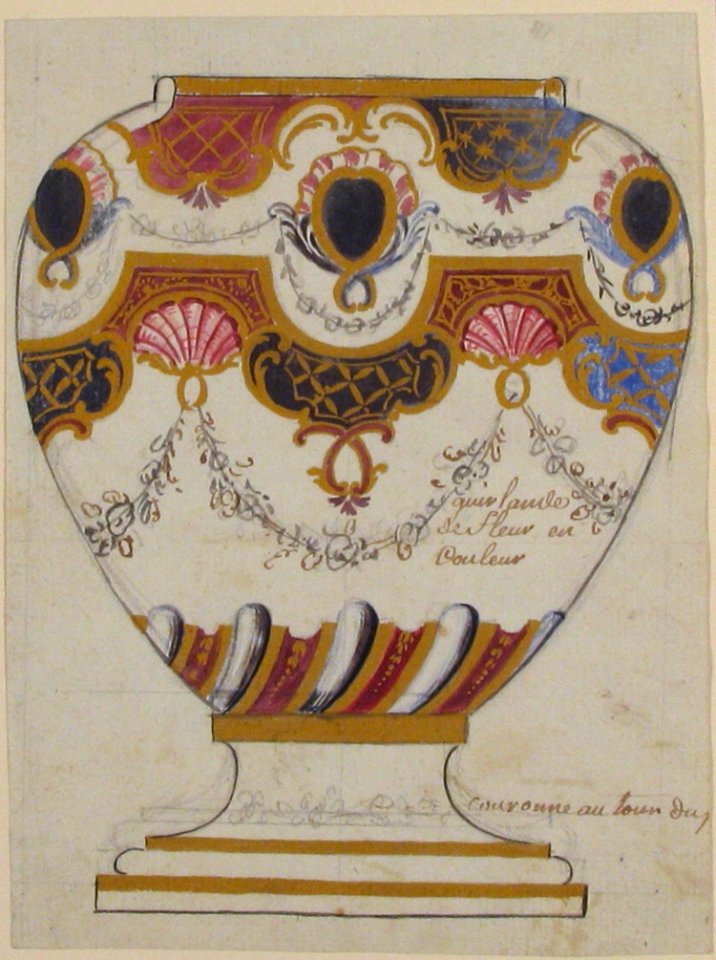 guirlande
de fleur en
Couleur
Couronne au tour du